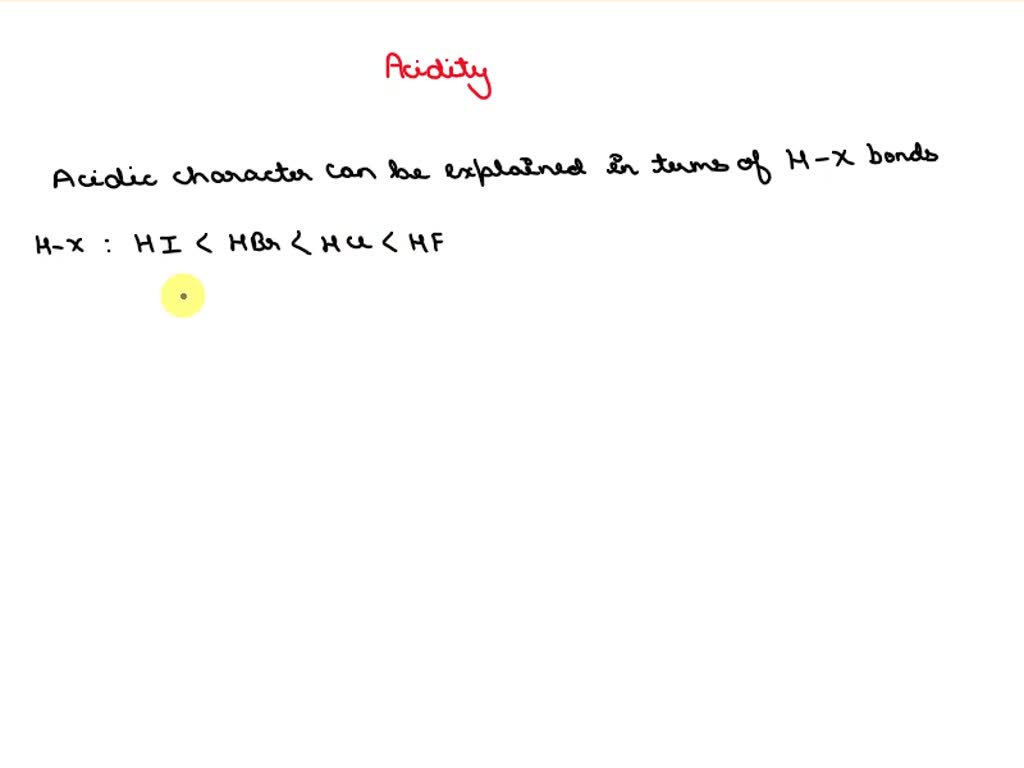 Acidity
Acidic character can be explained in terms of H-X bonds
H-X : HI < HBr < HCl < HF